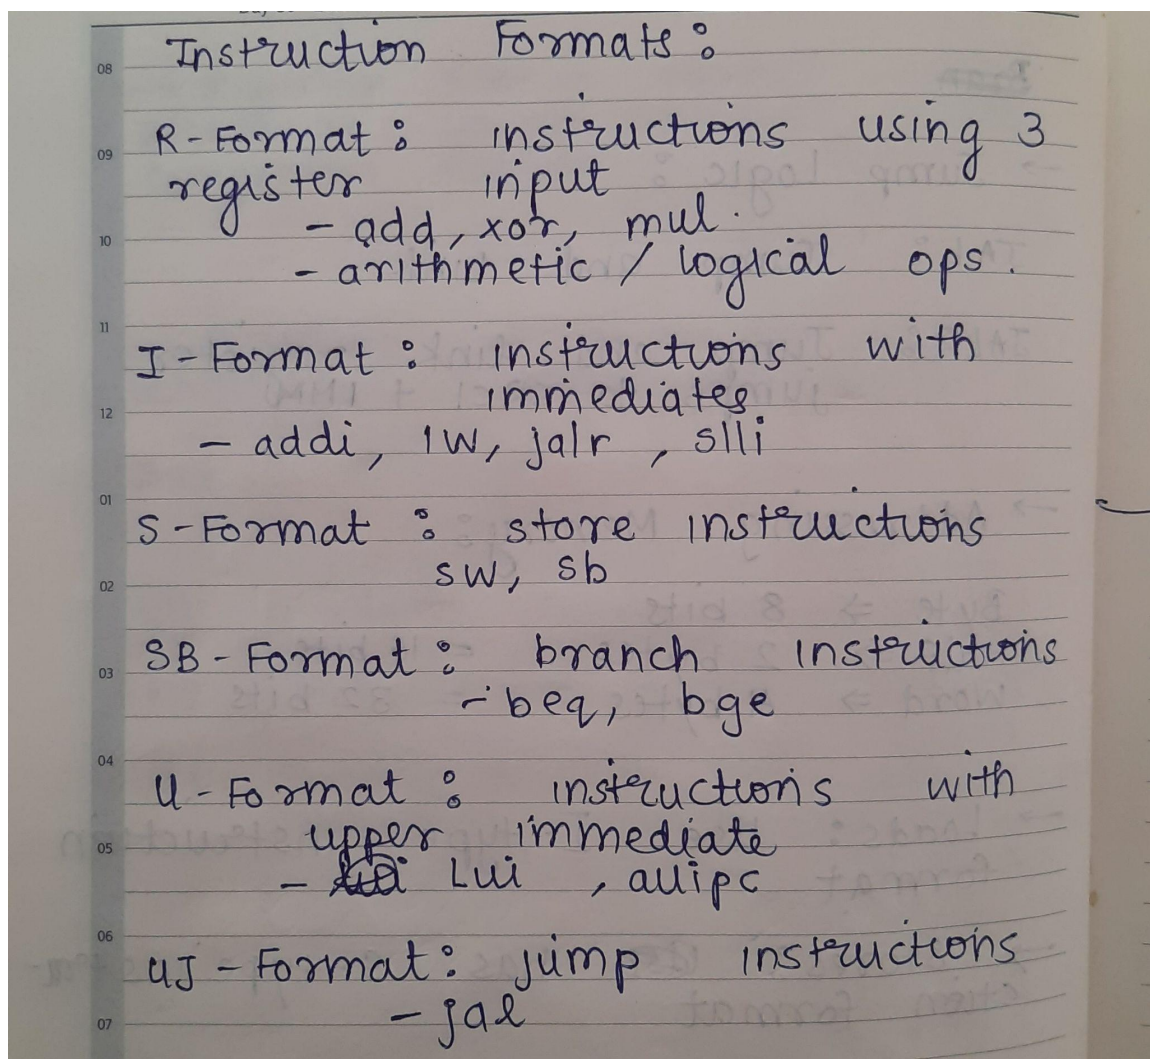 Instruction Formats :
08
R-Format : instructions using 3
09
register input
- add, xor, mul.
10
- arithmetic / logical ops.
11
I-Format : instructions with
immediates
12
- addi, lw, jalr, slli
01
S-Format : store instructions
sw, sb
02
SB-Format : branch instructions
03
- beq, bge
04
U-Format : instructions with
upper immediate
05
- Lui , auipc
06
UJ-Format : jump instructions
- jal
07